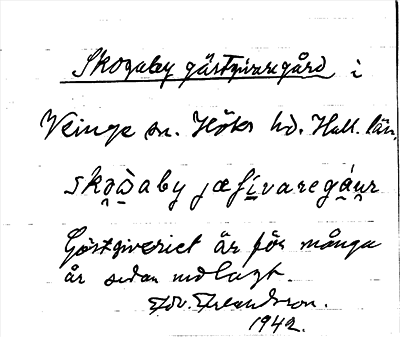 Skogaby gästgivaregård i
Veinge sn. Höks hd. Hall. län.
sko̯ɷ̀aby jæsi̱varegá̯u̯r
Gästgiveriet är för många
år sedan nedlagt.
Edv. Erlandsson.
1942.